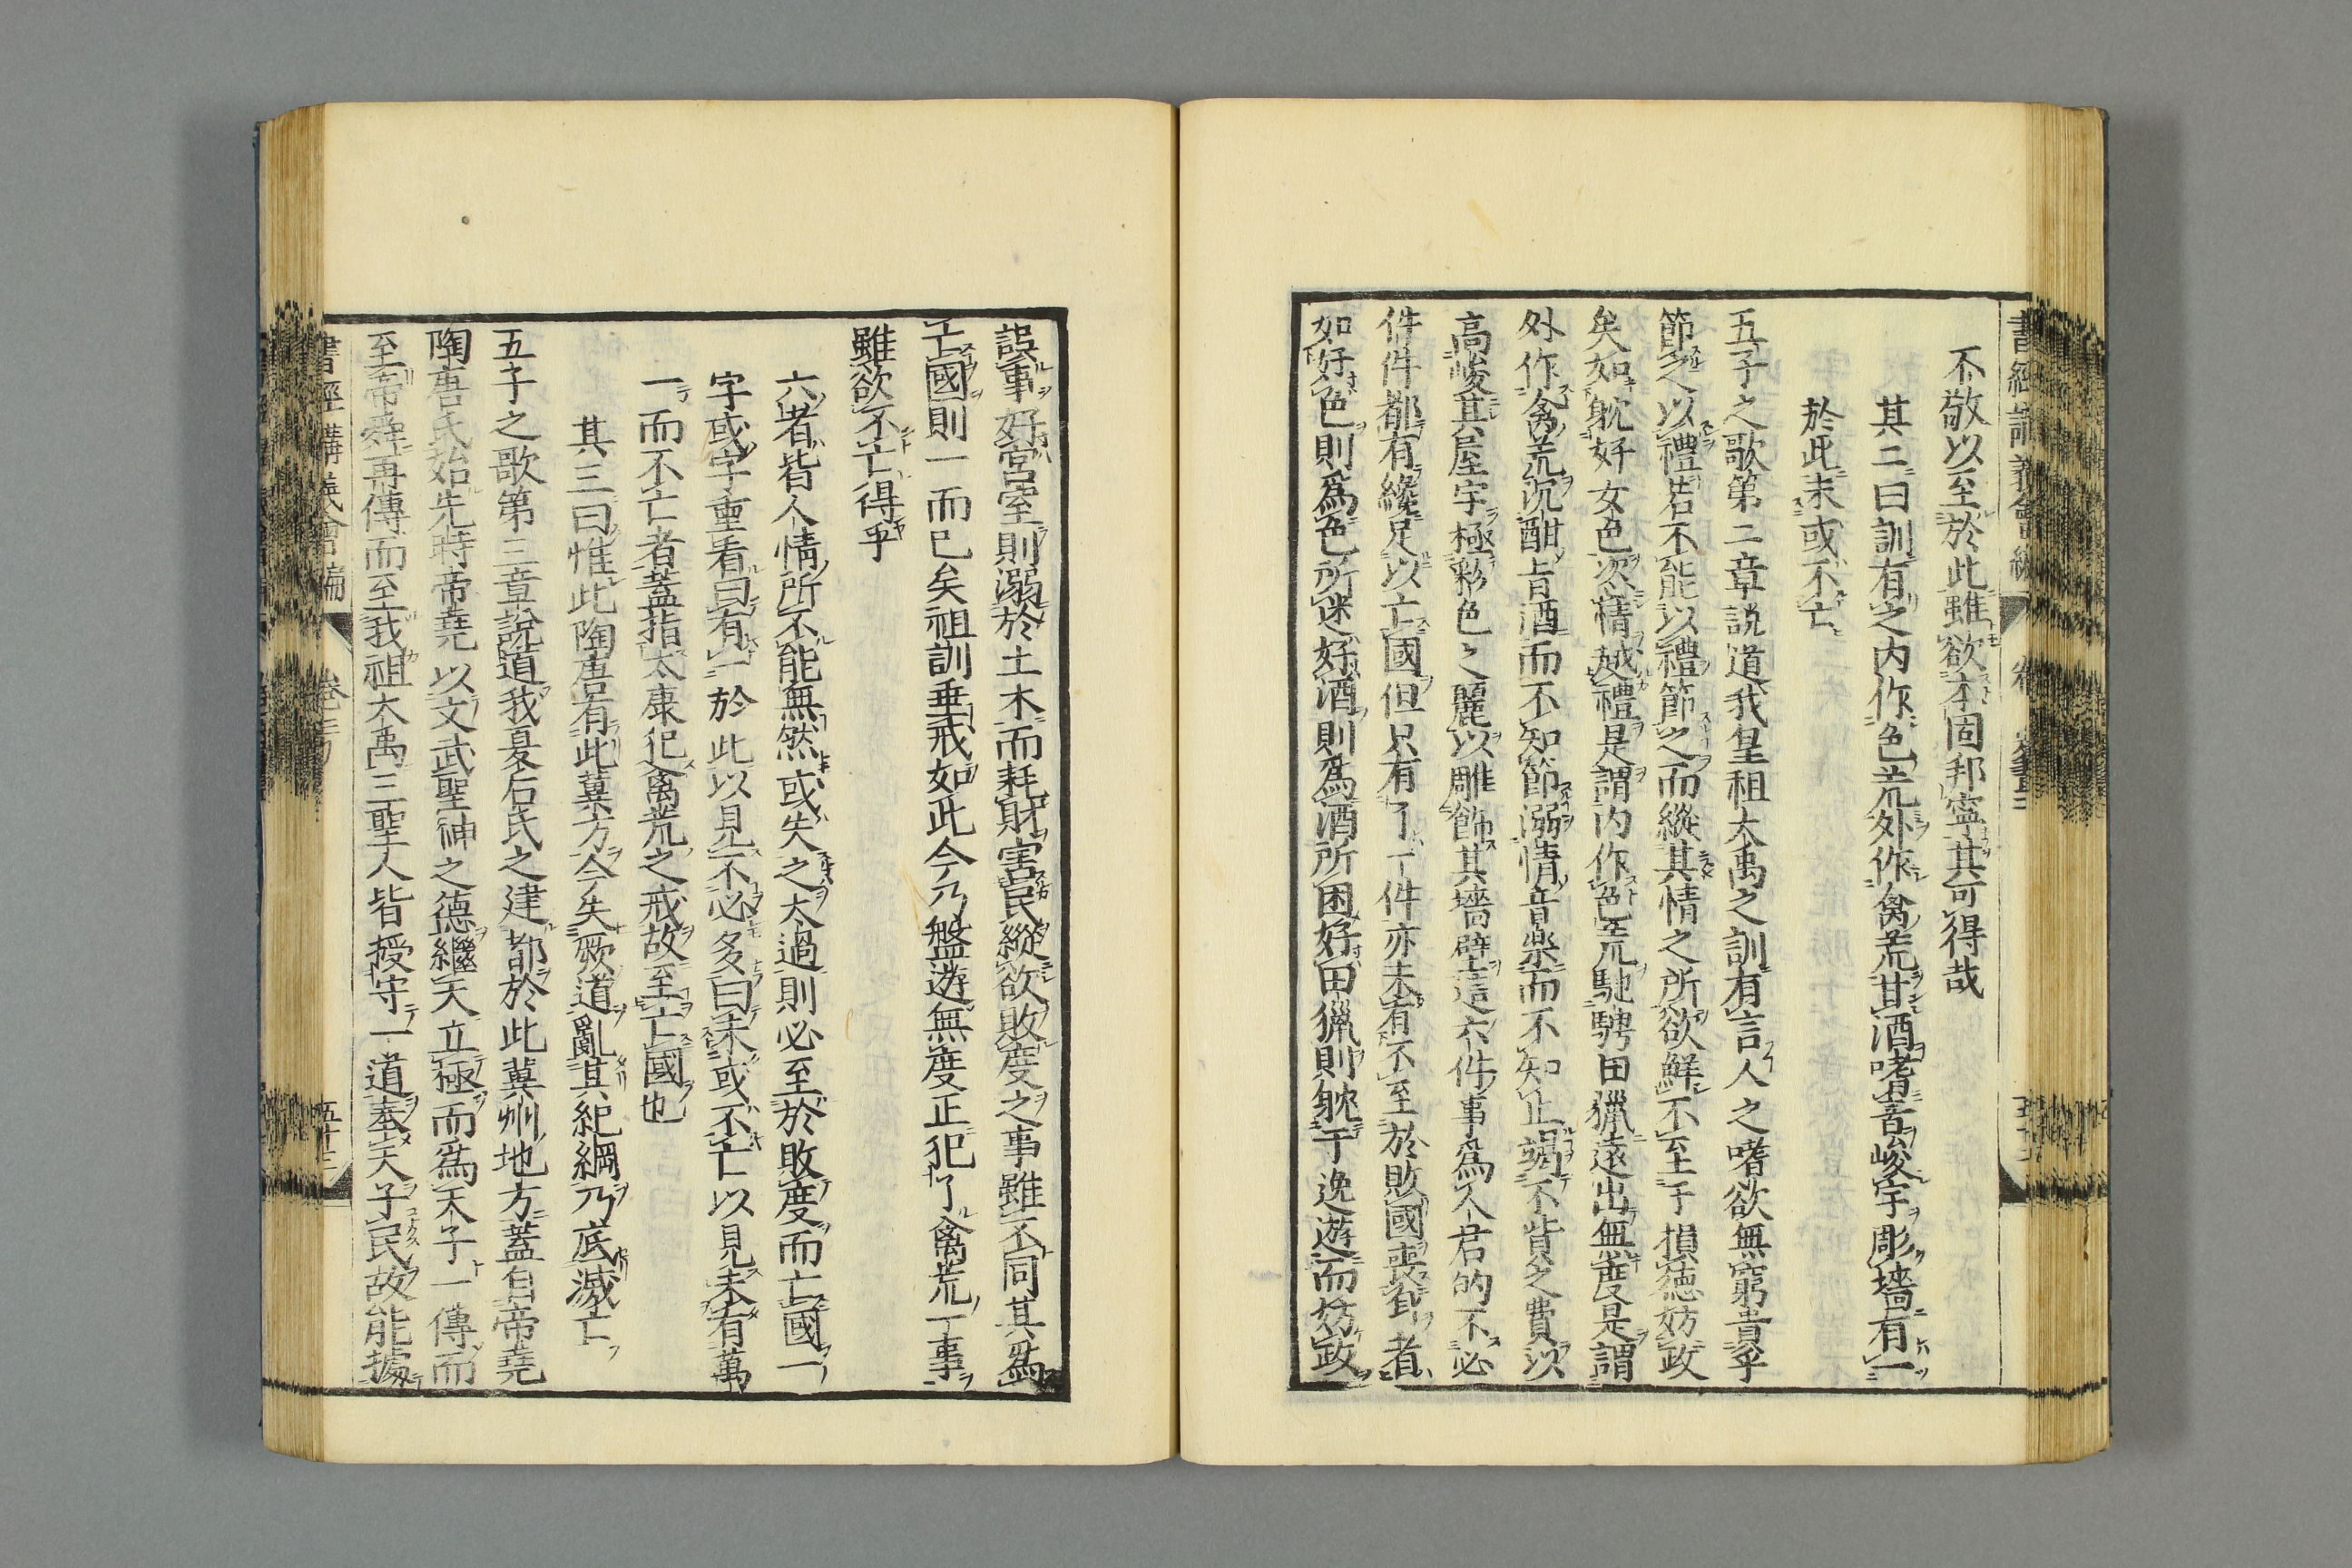 不敬以至於此雖欲本固邦寧其可得哉
其二曰訓有之內作色荒外作禽荒甘酒嗜音峻宇彫墻有一
於此未或不亡
五子之歌第二章説道我皇祖大禹之訓有言人之嗜欲無窮貴乎
節之以禮若不能以禮節之而縱其情之所欲鮮不至于損德妨政
矣如躭好女色恣情越禮是謂內作色荒馳騁田獵遠出無度是謂
外作禽荒沉酣旨酒而不知節溺情音樂而不知止竭不貲之費以
高峻其屋宇極彩色之麗以雕飾其墻壁這六件事為人君的不必
件件都有纔足以亡國但只有了一件亦未有不至於敗國喪邦者
如好色則為色所迷好酒則為酒所困好田獵則躭于逸遊而妨政
誤事好宮室則溺於土木而耗財害民縱欲敗度之事雖不同其為
亡國則一而已矣祖訓垂戒如此今乃盤遊無度正犯了禽荒一事
雖欲不亡得乎
六者皆人情所不能無然或失之太過則必至於敗度而亡國一
字或字重看曰有一於此以見不必多曰未或不亡以見未有萬
一而不亡者蓋指太康犯禽荒之戒故至亡國也
其三曰惟此陶唐有此冀方今失厥道亂其紀綱乃底滅亡
五子之歌第三章説道我夏后氏之建都於此冀州地方蓋自帝堯
陶唐氏始先時帝堯以文武聖神之德繼天立極而為天子一傳而
至帝舜再傳而至我祖大禹三聖人皆授守一道奉天子民故能據
書經講義會編
卷三
五十三